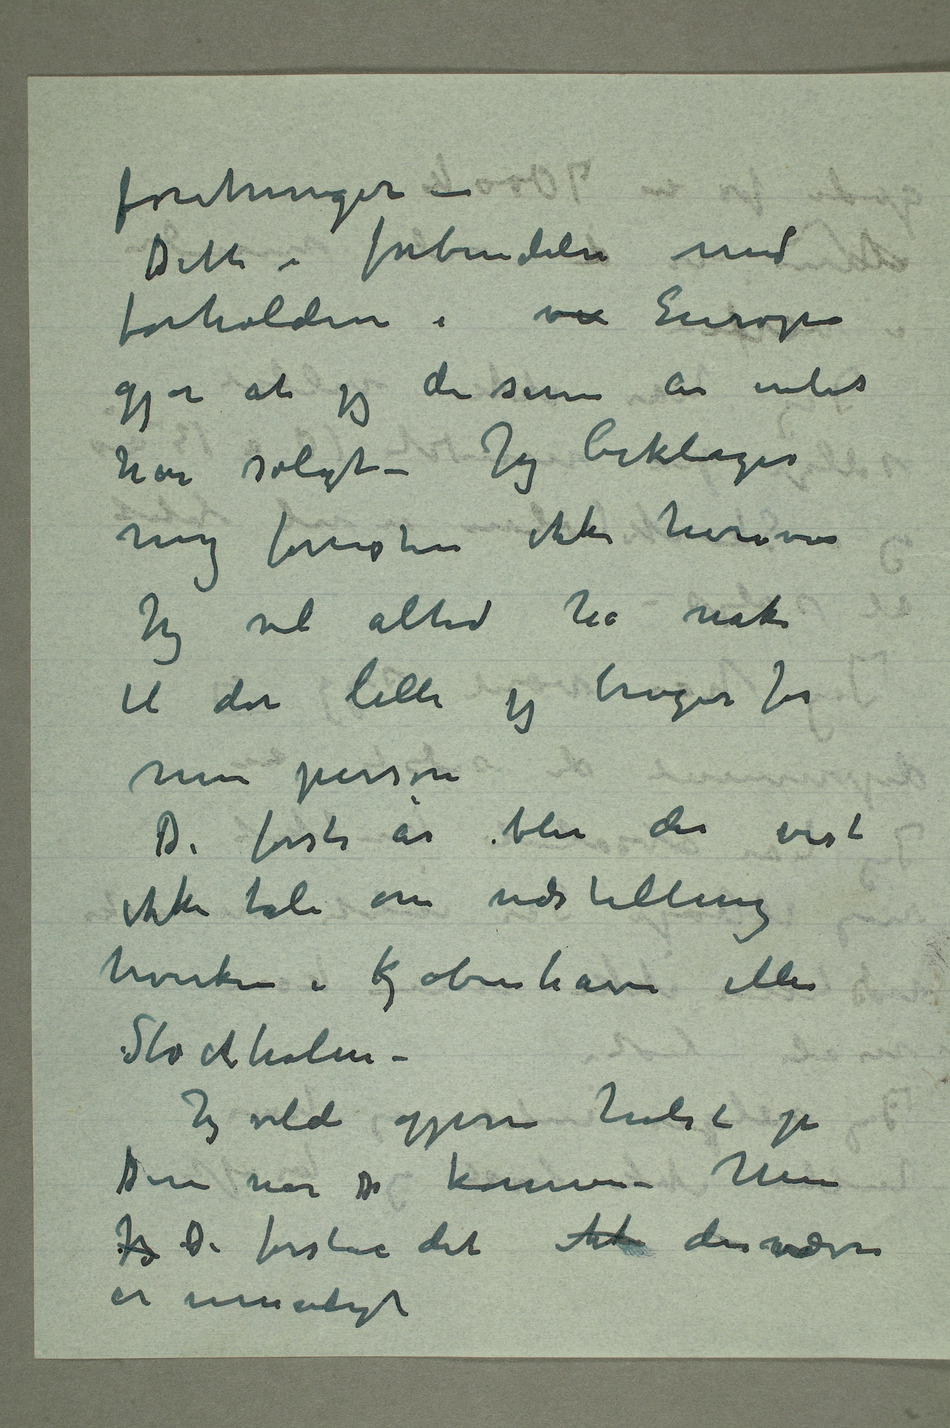 forretninger –
Dette i forbindelse med
forholdene i Europa
gjør at jeg de senere år intet
har solgt – Jeg beklager
mig forresten ikke herover
Jeg vil altid ha nok
til det lille jeg bruger for
min person
De første år blir der vist
ikke tale om udstilling
hverken i Kjøbenhavn eller
Stockholm –
Jeg vilde gjerne hilst på
Dem når De kommer – Men
Jeg De forstår det desværre
er umuligt